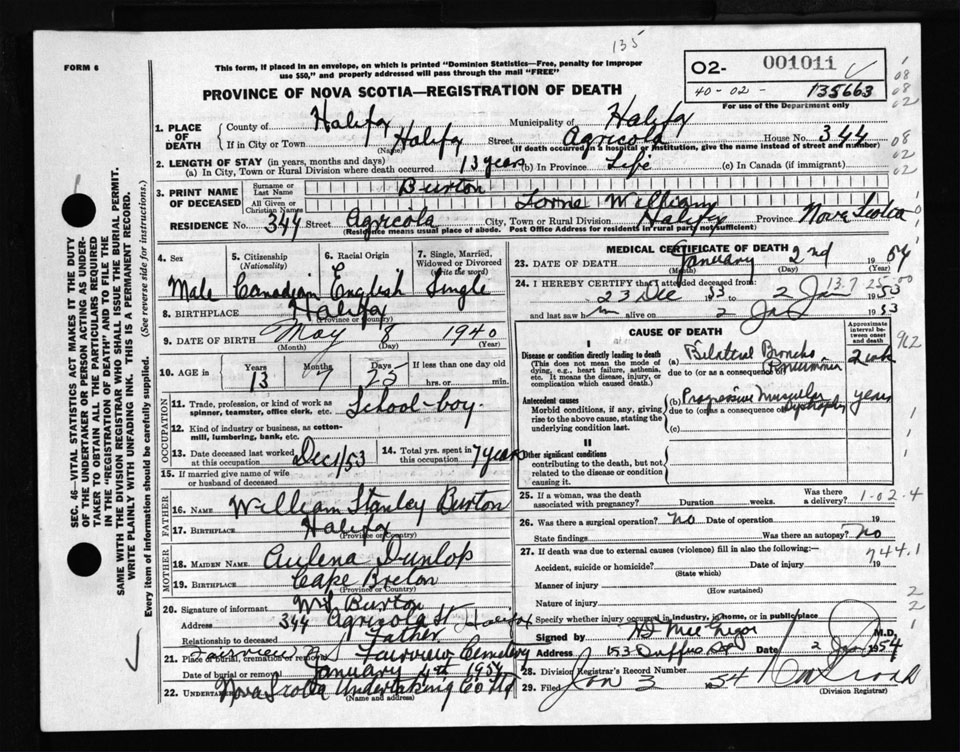 135
FORM 6
This form, if placed in an envelope, on which is printed "Dominion Statistics—Free, penalty for improper
use $50," and properly addressed will pass through the mail "FREE"
PROVINCE OF NOVA SCOTIA—REGISTRATION OF DEATH
O2- 001011
40-02- 135663
For use of the Department only
1. PLACE OF DEATH
County of Halifax Municipality of Halifax
If in City or Town Halifax Street Agricola House No. 344
(Name) (If death occurred in a hospital or institution, give the name instead of street and number)
2. LENGTH OF STAY (in years, months and days)
(a) In City, Town or Rural Division where death occurred 13 years (b) In Province Life (c) In Canada (if immigrant)
3. PRINT NAME OF DECEASED
Surname or Last Name Burton
All Given or Christian Names Lorne William
RESIDENCE No. 344 Street Agricola City, Town or Rural Division Halifax Province Nova Scotia
(Residence means usual place of abode. Post Office Address for residents in rural part not sufficient)
4. Sex
Male
5. Citizenship (Nationality)
Canadian
6. Racial Origin
English
7. Single, Married, Widowed or Divorced (write the word)
Single
8. BIRTHPLACE Halifax
(Province or Country)
9. DATE OF BIRTH May 8 1940
(Month) (Day) (Year)
10. AGE in Years Months Days If less than one day old
13 7 25 hrs. or min.
OCCUPATION
11. Trade, profession, or kind of work as spinner, teamster, office clerk, etc. School-boy.
12. Kind of industry or business, as cotton-mill, lumbering, bank, etc.
13. Date deceased last worked at this occupation Dec 1/53
14. Total yrs. spent in this occupation 7 years
15. If married give name of wife or husband of deceased
FATHER
16. NAME William Stanley Burton
17. BIRTHPLACE Halifax
(Province or Country)
MOTHER
18. MAIDEN NAME Aulena Dunlop
19. BIRTHPLACE Cape Breton
(Province or Country)
20. Signature of informant W.S. Burton
Address 344 Agricola St Halifax
Relationship to deceased Father
21. Place of burial, cremation or removal Fairview Cemetery
Date of burial or removal January 4th 1954
22. Undertaker Nova Scotia Undertaking Co Ltd
(Name and address)
MEDICAL CERTIFICATE OF DEATH
23. DATE OF DEATH January 2nd 1954
(Month) (Day) (Year)
24. I HEREBY CERTIFY that I attended deceased from
23 Dec 1953 to 2 Jan 1953
and last saw him alive on 2 Jan 1953
13.7 25.00
CAUSE OF DEATH
Approximate interval between onset and death
I
Disease or condition directly leading to death
(This does not mean the mode of dying, e.g., heart failure, asthenia, etc. It means the disease, injury, or complication which caused death.)
(a) Bilateral Broncho Pneumonia
due to (or as a consequence of)
Antecedent causes
Morbid conditions, if any, giving rise to the above cause, stating the underlying condition last.
(b) Progressive Muscular Dystrophy years
due to (or as a consequence of)
(c)
II
Other significant conditions
contributing to the death, but not related to the disease or condition causing it.
25. If a woman, was the death associated with pregnancy? Duration weeks. Was there a delivery?
1-02-4
26. Was there a surgical operation? No Date of operation 19
State findings Was there an autopsy? No
27. If death was due to external causes (violence) fill in also the following:—
744.1
Accident, suicide or homicide? Date of injury 19
(State which)
Manner of injury
(How sustained)
Nature of injury
Specify whether injury occurred in industry, in home, or in public place
Signed by M.D.
Address 153 Duffus St Date 2 Jan 1954
28. Division Registrar's Record Number
29. Filed Jan 3 1954
(Division Registrar)
SEC. 46—VITAL STATISTICS ACT MAKES IT THE DUTY
OF THE UNDERTAKER OR PERSON ACTING AS UNDER-
TAKER TO OBTAIN ALL THE PARTICULARS REQUIRED
IN THE "REGISTRATION OF DEATH" AND TO FILE THE
SAME WITH THE DIVISION REGISTRAR WHO SHALL ISSUE THE BURIAL PERMIT.
WRITE PLAINLY WITH UNFADING INK. THIS IS A PERMANENT RECORD.
Every item of information should be carefully supplied. (See reverse side for instructions.)